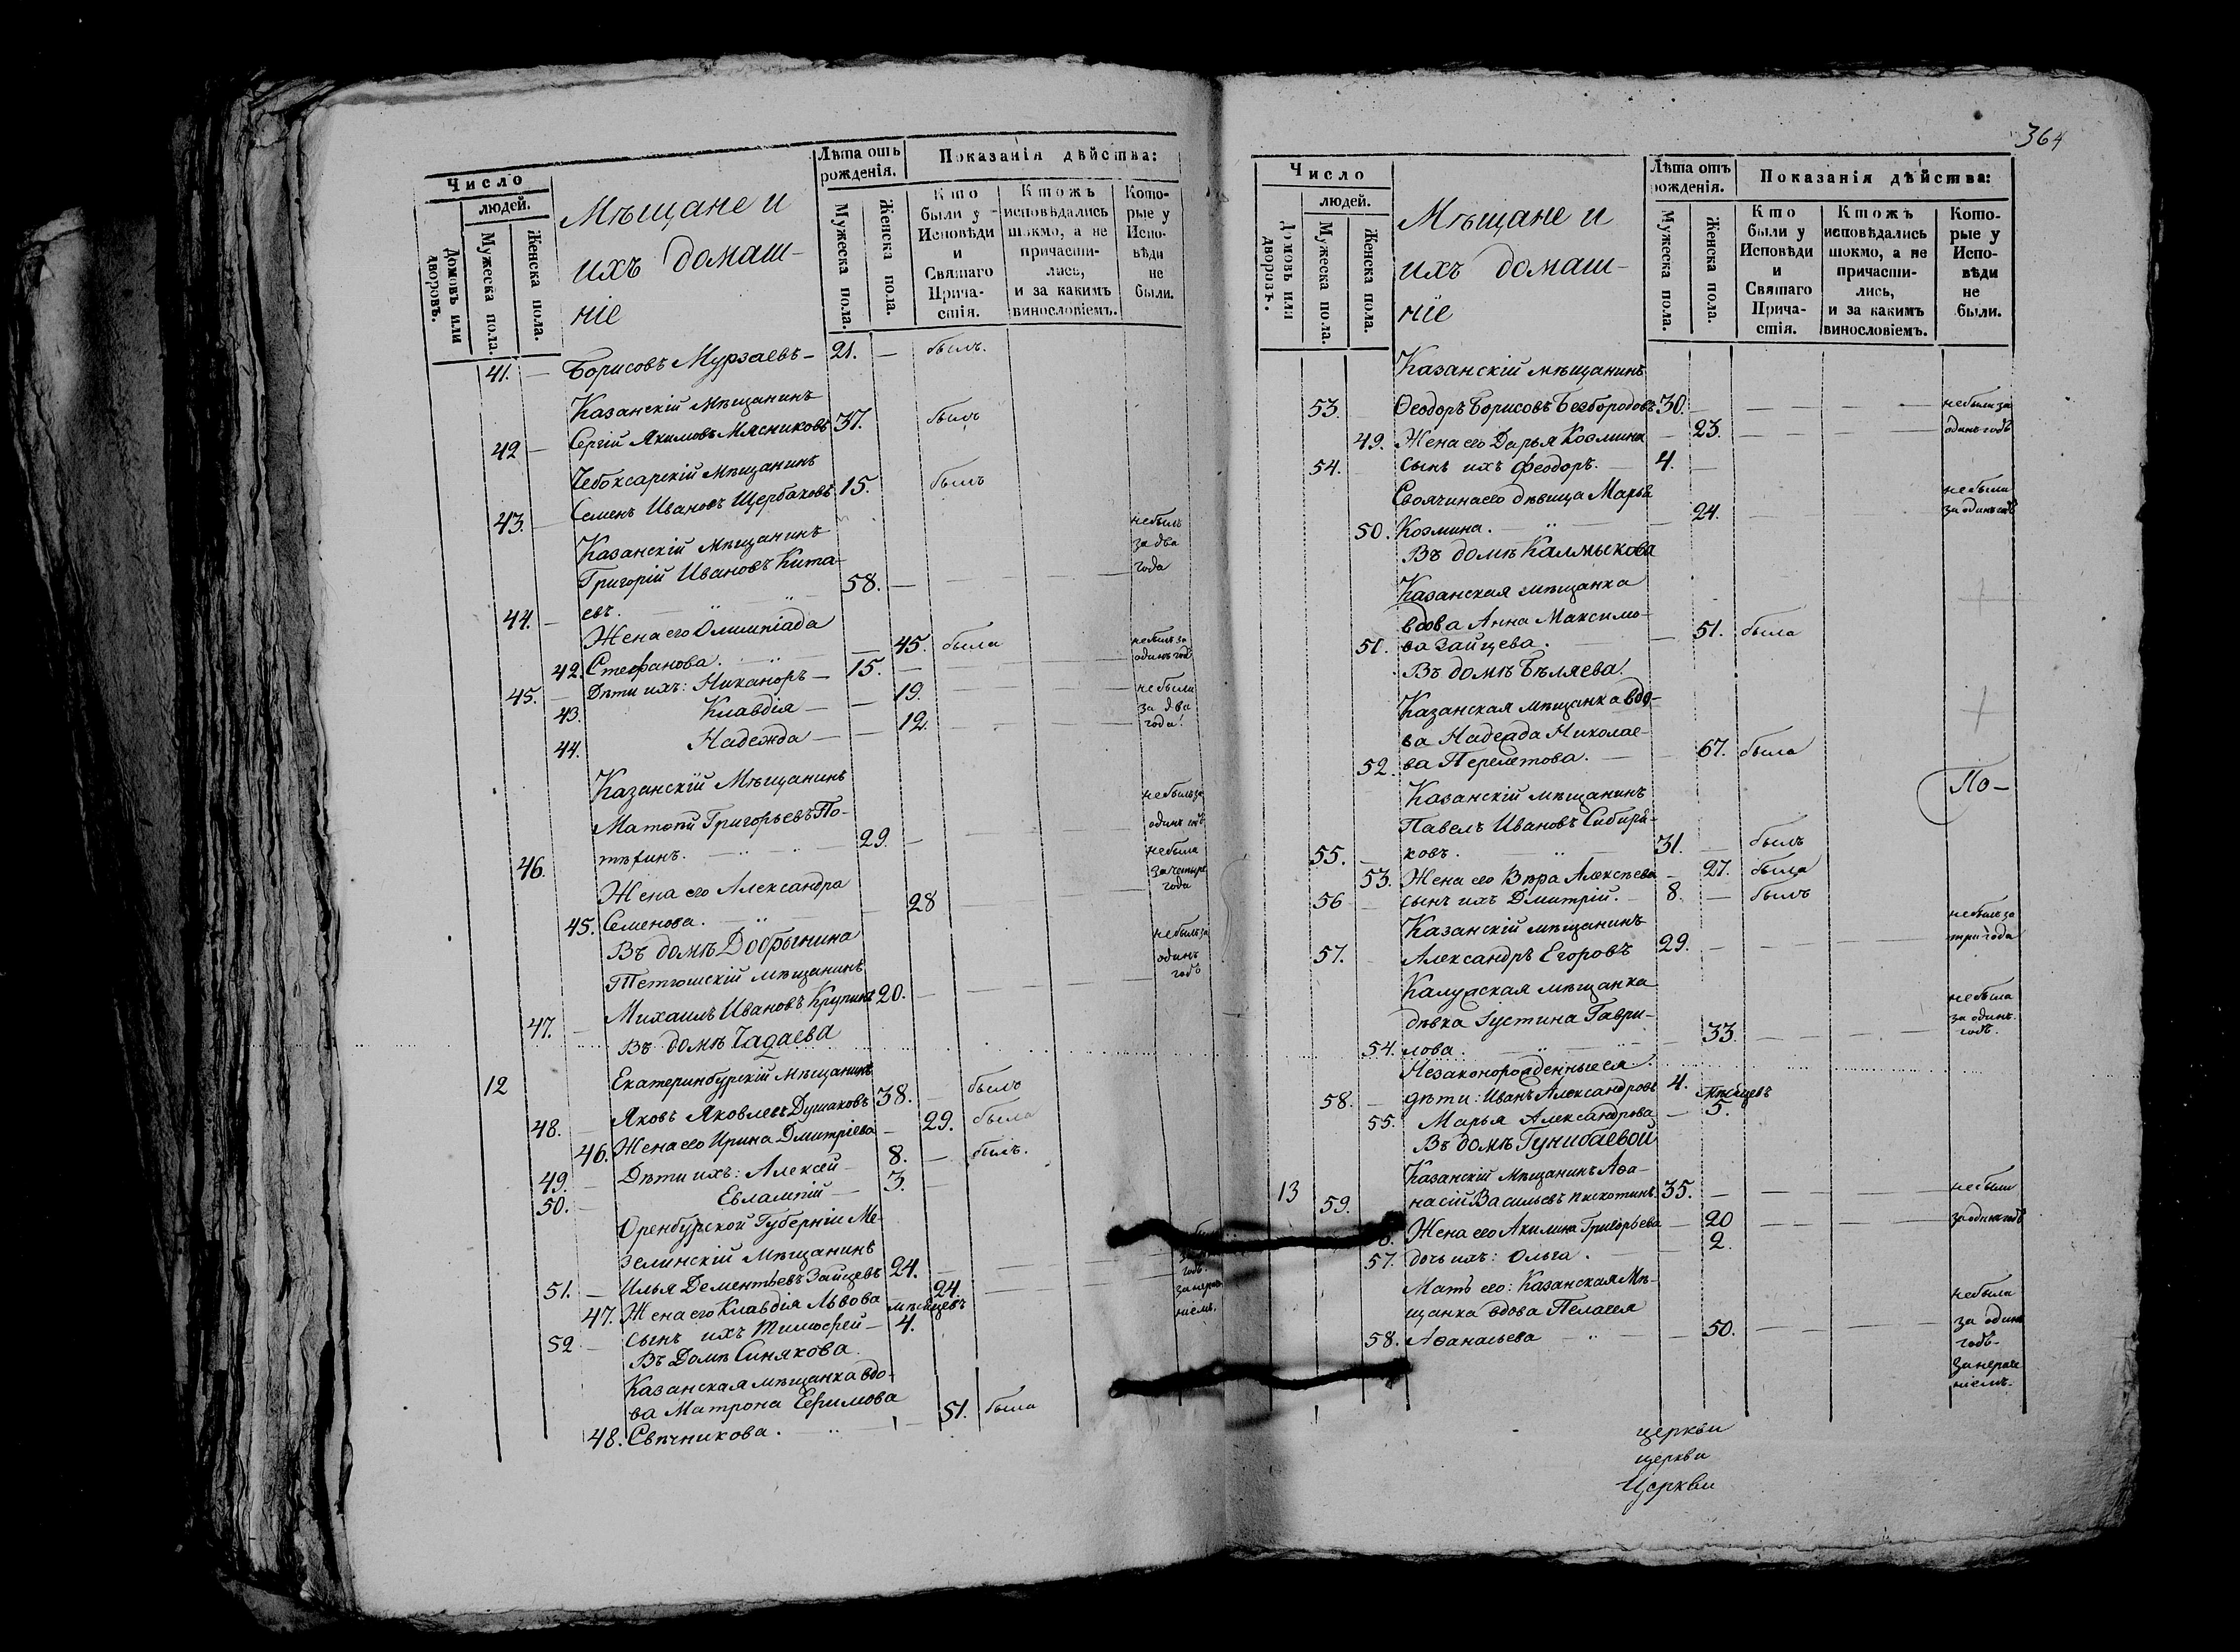 Число
людей.
Домовъ или дворовъ.
Мужеска пола.
Женска пола.
Мѣщане и
ихъ домаш-
ніе
Лѣта отъ
рожденія.
Мужеска пола.
Женска пола.
Показанія дѣйства:
Кто
были у
Исповѣди
и
Святаго
Прича-
стія.
Ктожъ
исповѣдались
токмо, а не
причасти-
лись,
и за какимъ
винословіемъ.
Кото-
рые у
Испо-
вѣди
не
были.
41. — Борисовъ Мурзаевъ — 21. — былъ.
Казанскій Мѣщанинъ
42 — Сергій Якимовъ Мясниковъ 37. былъ
Чебоксарскій Мѣщанинъ
43. — Семенъ Ивановъ Щербаковъ 15. былъ
Казанскій Мѣщанинъ
Григорій Ивановъ Кита-
44. — евъ. 58. — небылъ за два года
Жена его Олимпіада
42. Стефанова. — 45. была
45. — Дѣти ихъ: Никаноръ — 15. — небылъ за одинъ годъ
43. Клавдія — — 19. небыли
44. Надежда — — 12. за два года!
Казанскій Мѣщанинъ
Матѳій Григорьевъ По-
46. тѣхинъ. 29. — небылъ за одинъ годъ
Жена его Александра
45. Семенова. — 28 небыла за четыре года
Въ домѣ Добрынина
Тетюшскій мѣщанинъ
47. — Михаилъ Ивановъ Крупинъ 20. — небылъ за одинъ годъ
Въ домѣ Чадаева
12 Екатеринбурскій Мѣщанинъ
48. — Яковъ Яковлевъ Душаковъ 38. — былъ
46. Жена его Ирина Дмитріева — 29. была
49. — Дѣти ихъ: Алексѣй — 8. — былъ.
50. — Евлампій — 3. —
Оренбурской Губерніи Ме-
зелинскій Мѣщанинъ
51. — Илья Дементьевъ Зайцевъ 24. — годъ
47. Жена его Клавдія Львова 24.
мѣсяцевъ
52 — Сынъ ихъ Тимоѳей — 4.
Въ Домѣ Синякова.
Казанская мѣщанка вдо-
ва Матрона Ефимова
48. Свѣчникова. — 51. была
364
Число
людей.
Домовъ или дворовъ.
Мужеска пола.
Женска пола.
Мѣщане и
ихъ домаш-
ніе
Лѣта отъ
рожденія.
Мужеска пола.
Женска пола.
Показанія дѣйства:
Кто
были у
Исповѣди
и
Святаго
Прича-
стія.
Ктожъ
исповѣдались
токмо, а не
причасти-
лись,
и за какимъ
винословіемъ.
Кото-
рые у
Испо-
вѣди
не
были.
Казанскій мѣщанинъ
53. Ѳеодоръ Борисовъ Безбородовъ 30. — небыли за
49. Жена его Дарья Козмина — 23. одинъ годъ
54. Сынъ ихъ Феодоръ. — 4. —
Своячина его дѣвица Марья
50. Козмина. — 24. небыла за одинъ годъ
Въ домѣ Калмыкова
Казанская мѣщанка
вдова Анна Максимо-
51. ва Зайцева. — 51. была
Въ домѣ Бѣляева.
Казанская мѣщанка вдо-
ва Надежда Николае-
52. ва Перелетова. — 67. была
По-
Казанскій мѣщанинъ
Павелъ Ивановъ Сибиря-
55. — ковъ. 31. — былъ
53. Жена его Вѣра Алексѣева — 27. была
56 — сынъ ихъ Дмитрій. — 8. — былъ
Казанскій мѣщанинъ
57. Александръ Егоровъ 29. — небылъ за три года
Калужская мѣщанка
дѣвка Іустина Гаври-
54. лова. — 33. небыла за одинъ годъ.
Незаконорожденные ея
58. — дѣти: Иванъ Александровъ 4. мѣсяцевъ
55. Марья Александрова — 5.
Въ домѣ Гунибаевой
Казанскій Мѣщанинъ Аѳа-
13 59. насій Васильевъ Пискотинъ 35. — небыли
Жена его Акилина Григорьева — 20 за одинъ годъ
57. дочь ихъ: Ольга. 2.
Мать его: Казанская Мѣ-
щанка вдова Пелагея
58. Аѳанасьева — 50. небыла за одинъ годъ.
церкви
церкви
Церкви